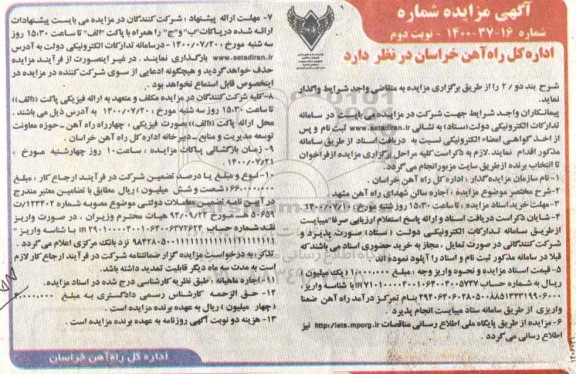 آگهی مزایده شماره
شماره ۱۶-۳۷-۱۴۰۰ - نوبت دوم
اداره کل راه آهن خراسان در نظر دارد
شرح بند دو ۲/ را از طریق برگزاری مزایده به متقاضی واجد شرایط واگذار
نماید.
پیمانکاران واجد شرایط جهت شرکت در مزایده می بایست در سامانه
تدارکات الکترونیکی دولت (ستاد) به نشانی www.setadiran.ir ثبت نام و پس
از اخذ گواهی امضاء الکترونیکی نسبت به دریافت اسناد از طریق سامانه
مذکور اقدام نمایند. لازم به ذکر است کلیه مراحل برگزاری مزایده از فراخوان
تا انتخاب برنده از طریق سایت مزبور انجام می گردد.
۱- نام سازمان مزایده گذار: اداره کل راه آهن خراسان .
۲-شرح مختصر موضوع مزایده : اجاره سالن شهدای راه آهن مشهد.
۳- مهلت خرید اسناد مزایده : تا ساعت ۱۵:۳۰ روز
۴- شایان ذکر است دریافت اسناد و ارائه پاسخ استعلام ارزیابی صرفا میبایست
از طریق سامانه تدارکات الکترونیکی دولت ( ستاد) صورت پذیرد و
شرکت کنندگانی در صورت تمایل ، مجاز به خرید حضوری اسناد می باشند که
قبلا در سامانه مذکور ثبت نام و اسناد را آپلود نموده اند
۵- قیمت اسناد مزایده و نحوه واریز وجه : مبلغ ۱/۰۰۰/۰۰۰ ( یک میلیون
ریال به شماره حساب،
بنام تمرکز درآمد راه آهن ضمنا
واریزی از طریق سامانه ستاد میبایست انجام پذیرد .
۶-مزایده از طریق پایگاه ملی اطلاع رسانی مناقصات http://iets.mporg.ir نیز
اطلاع رسانی می گردد .
۷- مهلت ارائه پیشنهاد : شرکت کنندگان در مزایده می بایست پیشنهادات
ارائه شده در پاکات "ب" و "ج" را همراه با پاکت "الف" تا ساعت ۱۵:۳۰ روز
سه شنبه مورخ ۱۴۰۰/۰۷/۲۰ - درسامانه تدارکات الکترونیکی دولت به آدرس
www.setadiran.ir بارگذاری نمایند. در غیر اینصورت از فرآیند مزایده
حذف خواهد گردید و هیچگونه ادعایی از سوی شرکت کننده در مزایده در
اینخصوص قابل استماع نخواهد بود .
۸-کلیه شرکت کنندگان در مزایده مکلف و متعهد به ارائه فیزیکی پاکت ((الف))
تا ساعت ۱۵:۳۰ روز سه شنبه مورخ ۱۴۰۰/۰۷/۲۰ به آدرس ذیل می باشند .
محل ارائه پاکت ((الف)) بصورت فیزیکی : چهارراه راه آهن - حوزه معاونت
توسعه مدیریت و منابع - دبیرخانه اداره کل راه آهن خراسان
۹- زمان بازگشائی پاکات مزایده : ساعت ۱۰ روز چهارشنبه مورخ
۱۴۰۰/۰۷/۲۱
۱۰- نوع و مبلغ یا درصد تضمین شرکت در فرآیند ارجاع کار ، مبلغ
۶۶.۰۰۰.۰۰۰ (شصت و شش میلیون) ریال مطابق با تضامین معتبر مندرج
در آیین نامه تضمین معاملات دولتی موضوع مصوبه شماره ۱۲۳۴۰۲/ت
۵۰۶۵۹ هـ مورخ ۹۴/۰۹/۲۲ هیات محترم وزیران . در صورت واریز
نقد شماره حساب
نزد بانک مرکزی اعلام می گردد .
تذکر: به درخواست مزایده گزار ضمانتنامه شرکت در فرآیند ارجاع کار لازم
است به مدت سه ماه دیگر قابلیت تمدید داشته باشد.
۱۱- اجاره ماهیانه : طبق نظریه کارشناسی درج شده در اسناد مزایده.
۱۲- حق الزحمه کارشناس رسمی دادگستری به مبلغ ۴.۰۰۰.۰۰۰
(چهار میلیون) ریال به عهده برنده مزایده است .
۱۳- هزینه دو نوبت آگهی روزنامه به عهده برنده مزایده است .
اداره کل راه آهن خراسان